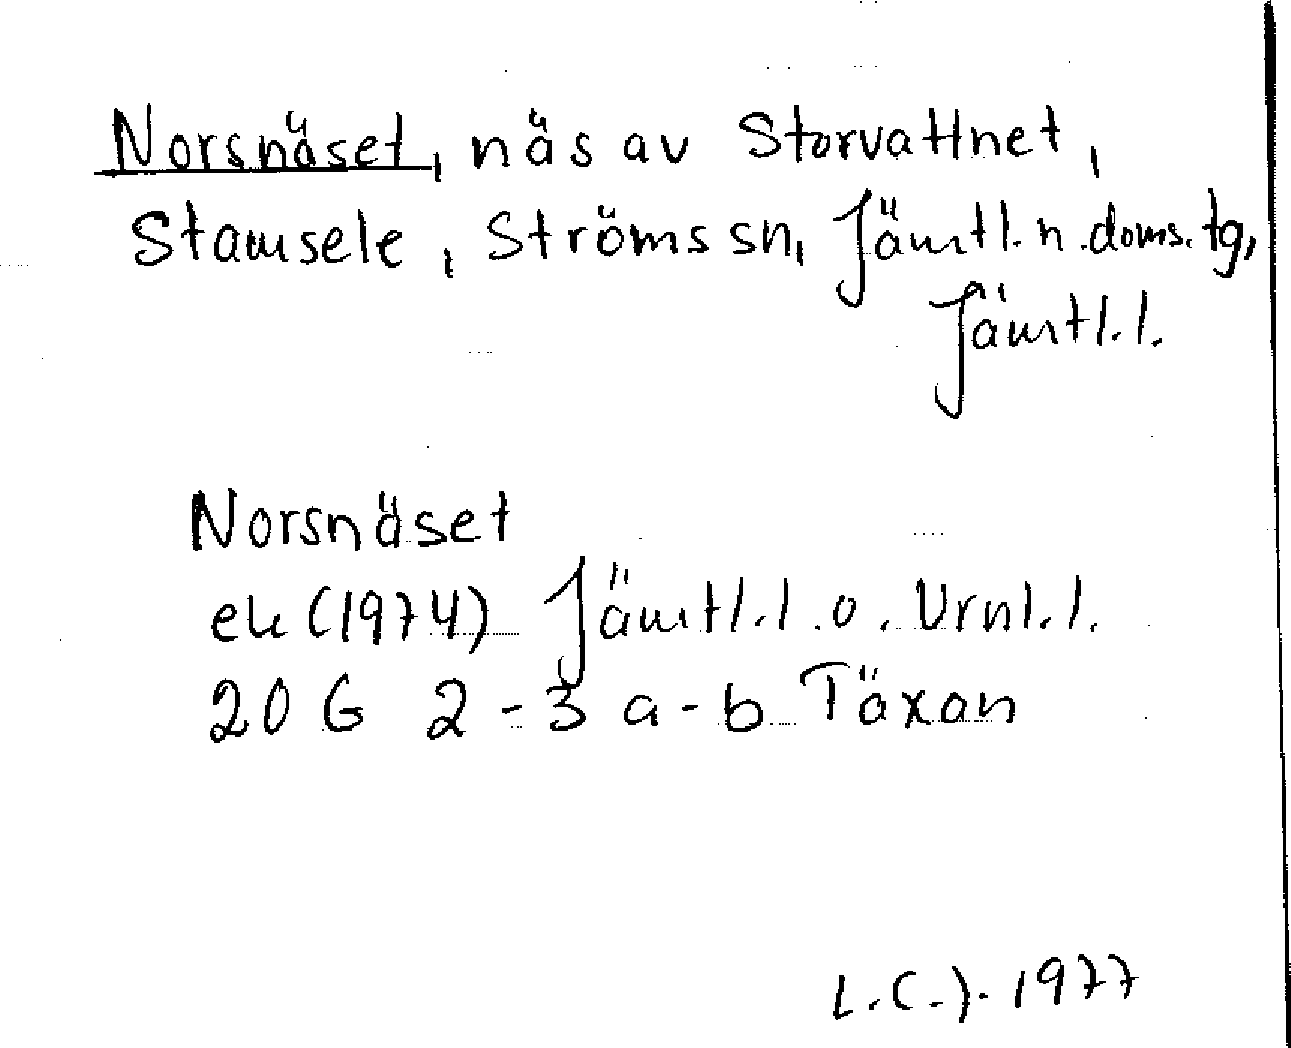 Norsnäset, näs av Storvattnet,
Stamsele, Ströms sn, Jämtl. n. doms. tg,
Jämtl. l.
Norsnäset
ek (1974) Jämtl. l. o. Vrnl. l.
20 G 2 - 3 a - b Täxan
L.C.J. 1977